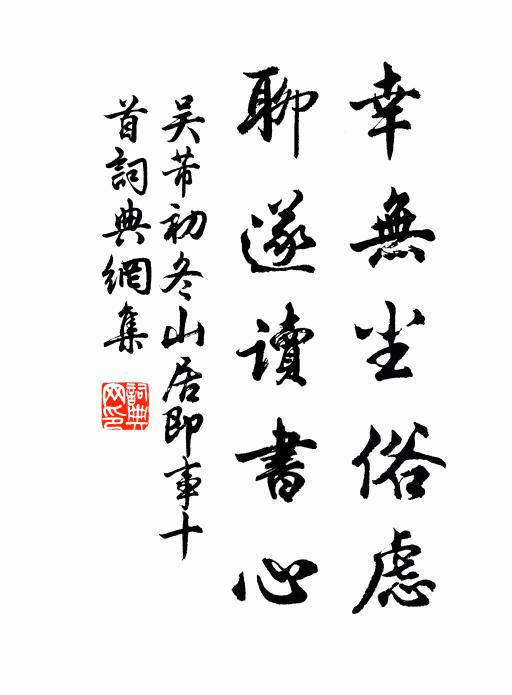 幸無尘俗慮
聊遂讀書心
吴芾初冬山居即事十
首詞典網集
詞典网印